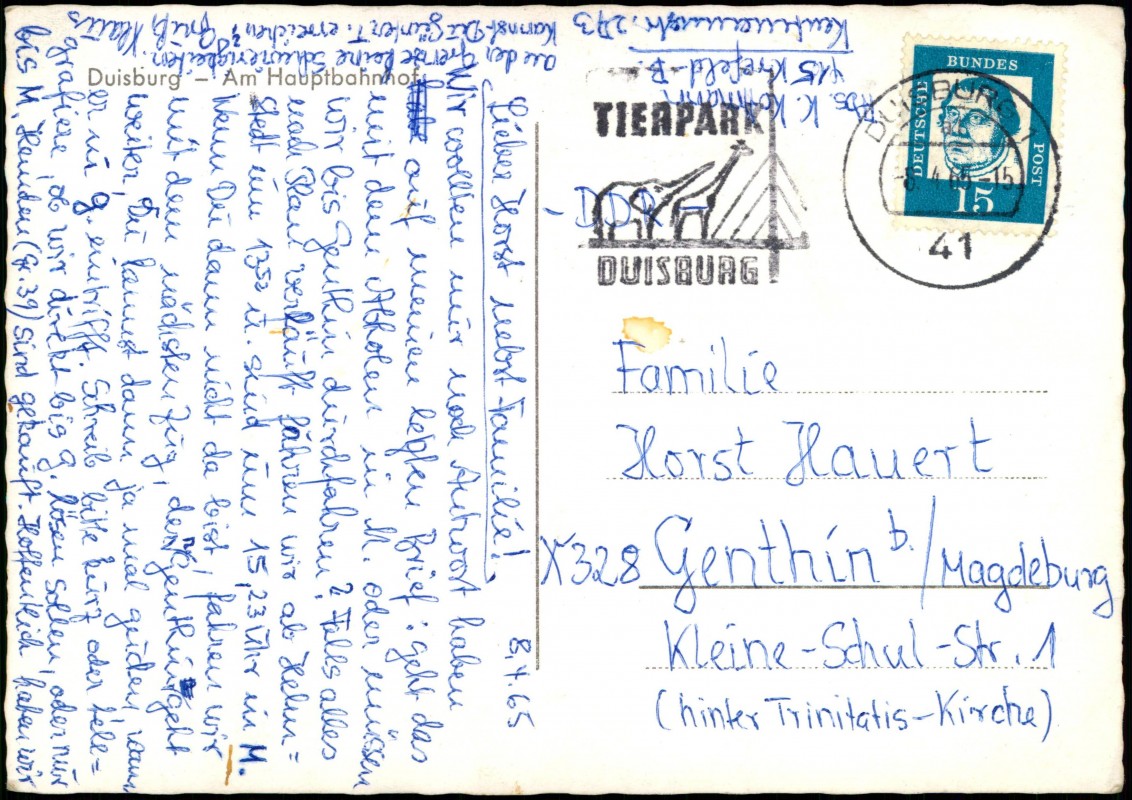 Duisburg – Am Hauptbahnhof
8.4.65
Lieber Horst nebst Familie!
Wir wollten nur noch Antwort haben
auf meinen letzten Brief: geht das
mit dem Abholen in M. oder müssen
wir bis Genthin durchfahren? Falls alles
nach Plan verläuft fahren wir ab Helm=
stedt um 13⁵² u. sind um 15,23 Uhr in M.
Wenn Du dann nicht da bist, fahren wir
mit dem nächsten Zug, der n. Genthin geht
weiter, Du kannst dann ja mal gucken, wann
er in G. eintrifft. Schreib bitte kurz oder tele=
grafiere, ob wir direkt bis G. lösen sollen, oder nur
bis M. Hemden (Gr. 39) sind gekauft. Hoffentlich haben wir
an der Grenze keine Schwierigkeiten.
Kannst Du Günter T. erreichen? Gruß Klaus
Abs. K. Kottmann
415 Krefeld-B.
str. 273
TIERPARK
DUISBURG
DUISBURG 1
-8.4.65-15
41
DEUTSCHE
BUNDES
POST
15
- DDR -
Familie
Horst Hauert
X328 Genthin b./Magdeburg
Kleine-Schul-Str. 1
(hinter Trinitatis-Kirche)